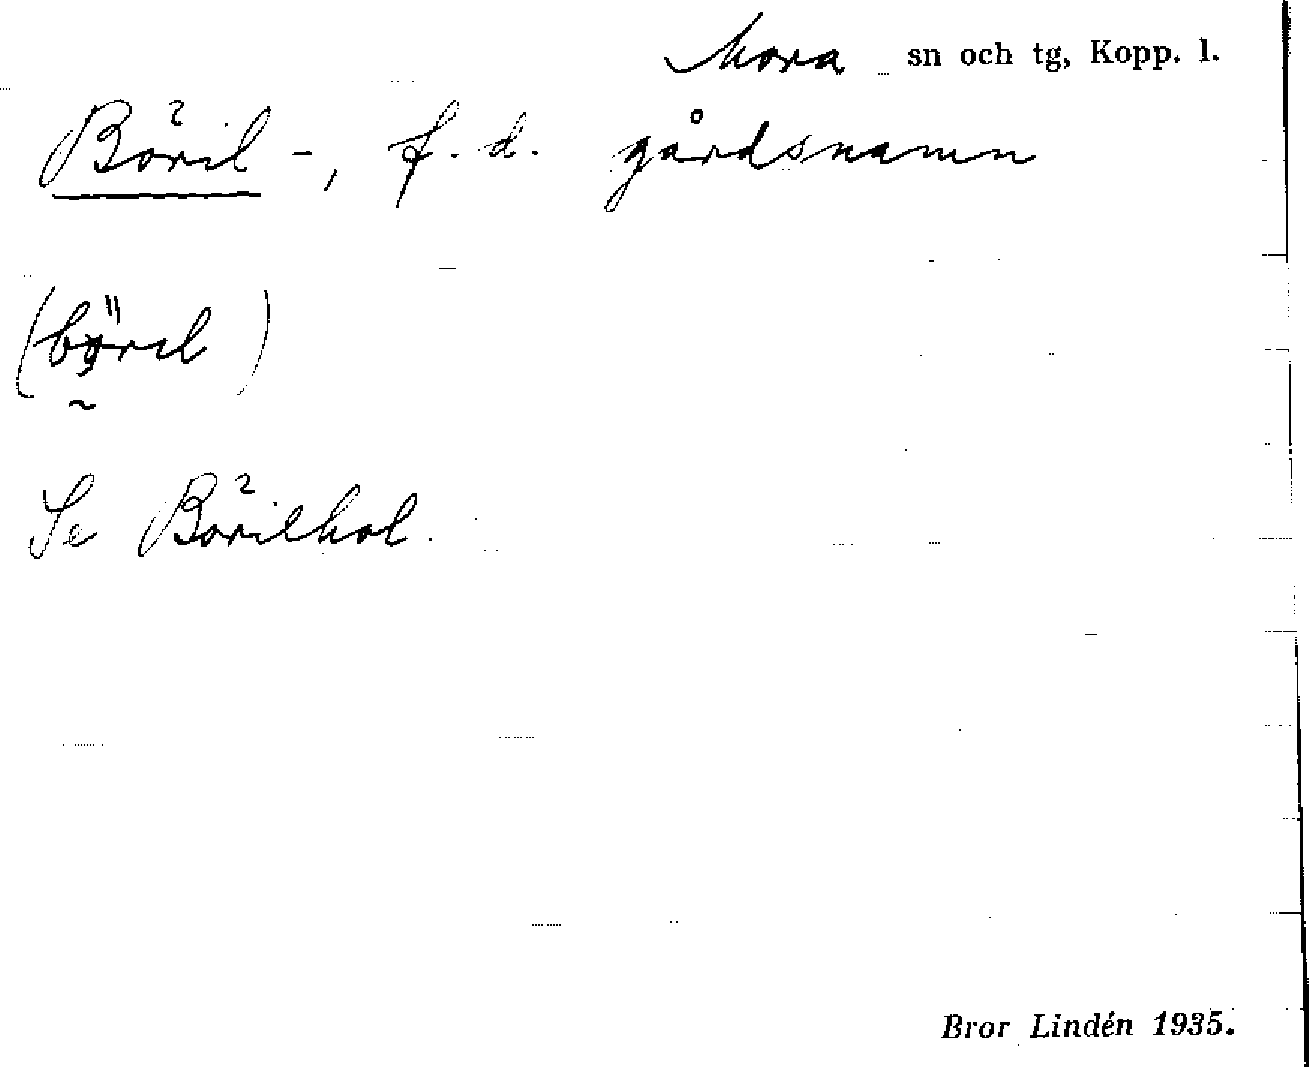 Mora sn och tg, Kopp. l.
Böril-, f. d. gårdsnamn
(böril)
Se Börilhol.
Bror Lindén 1935.